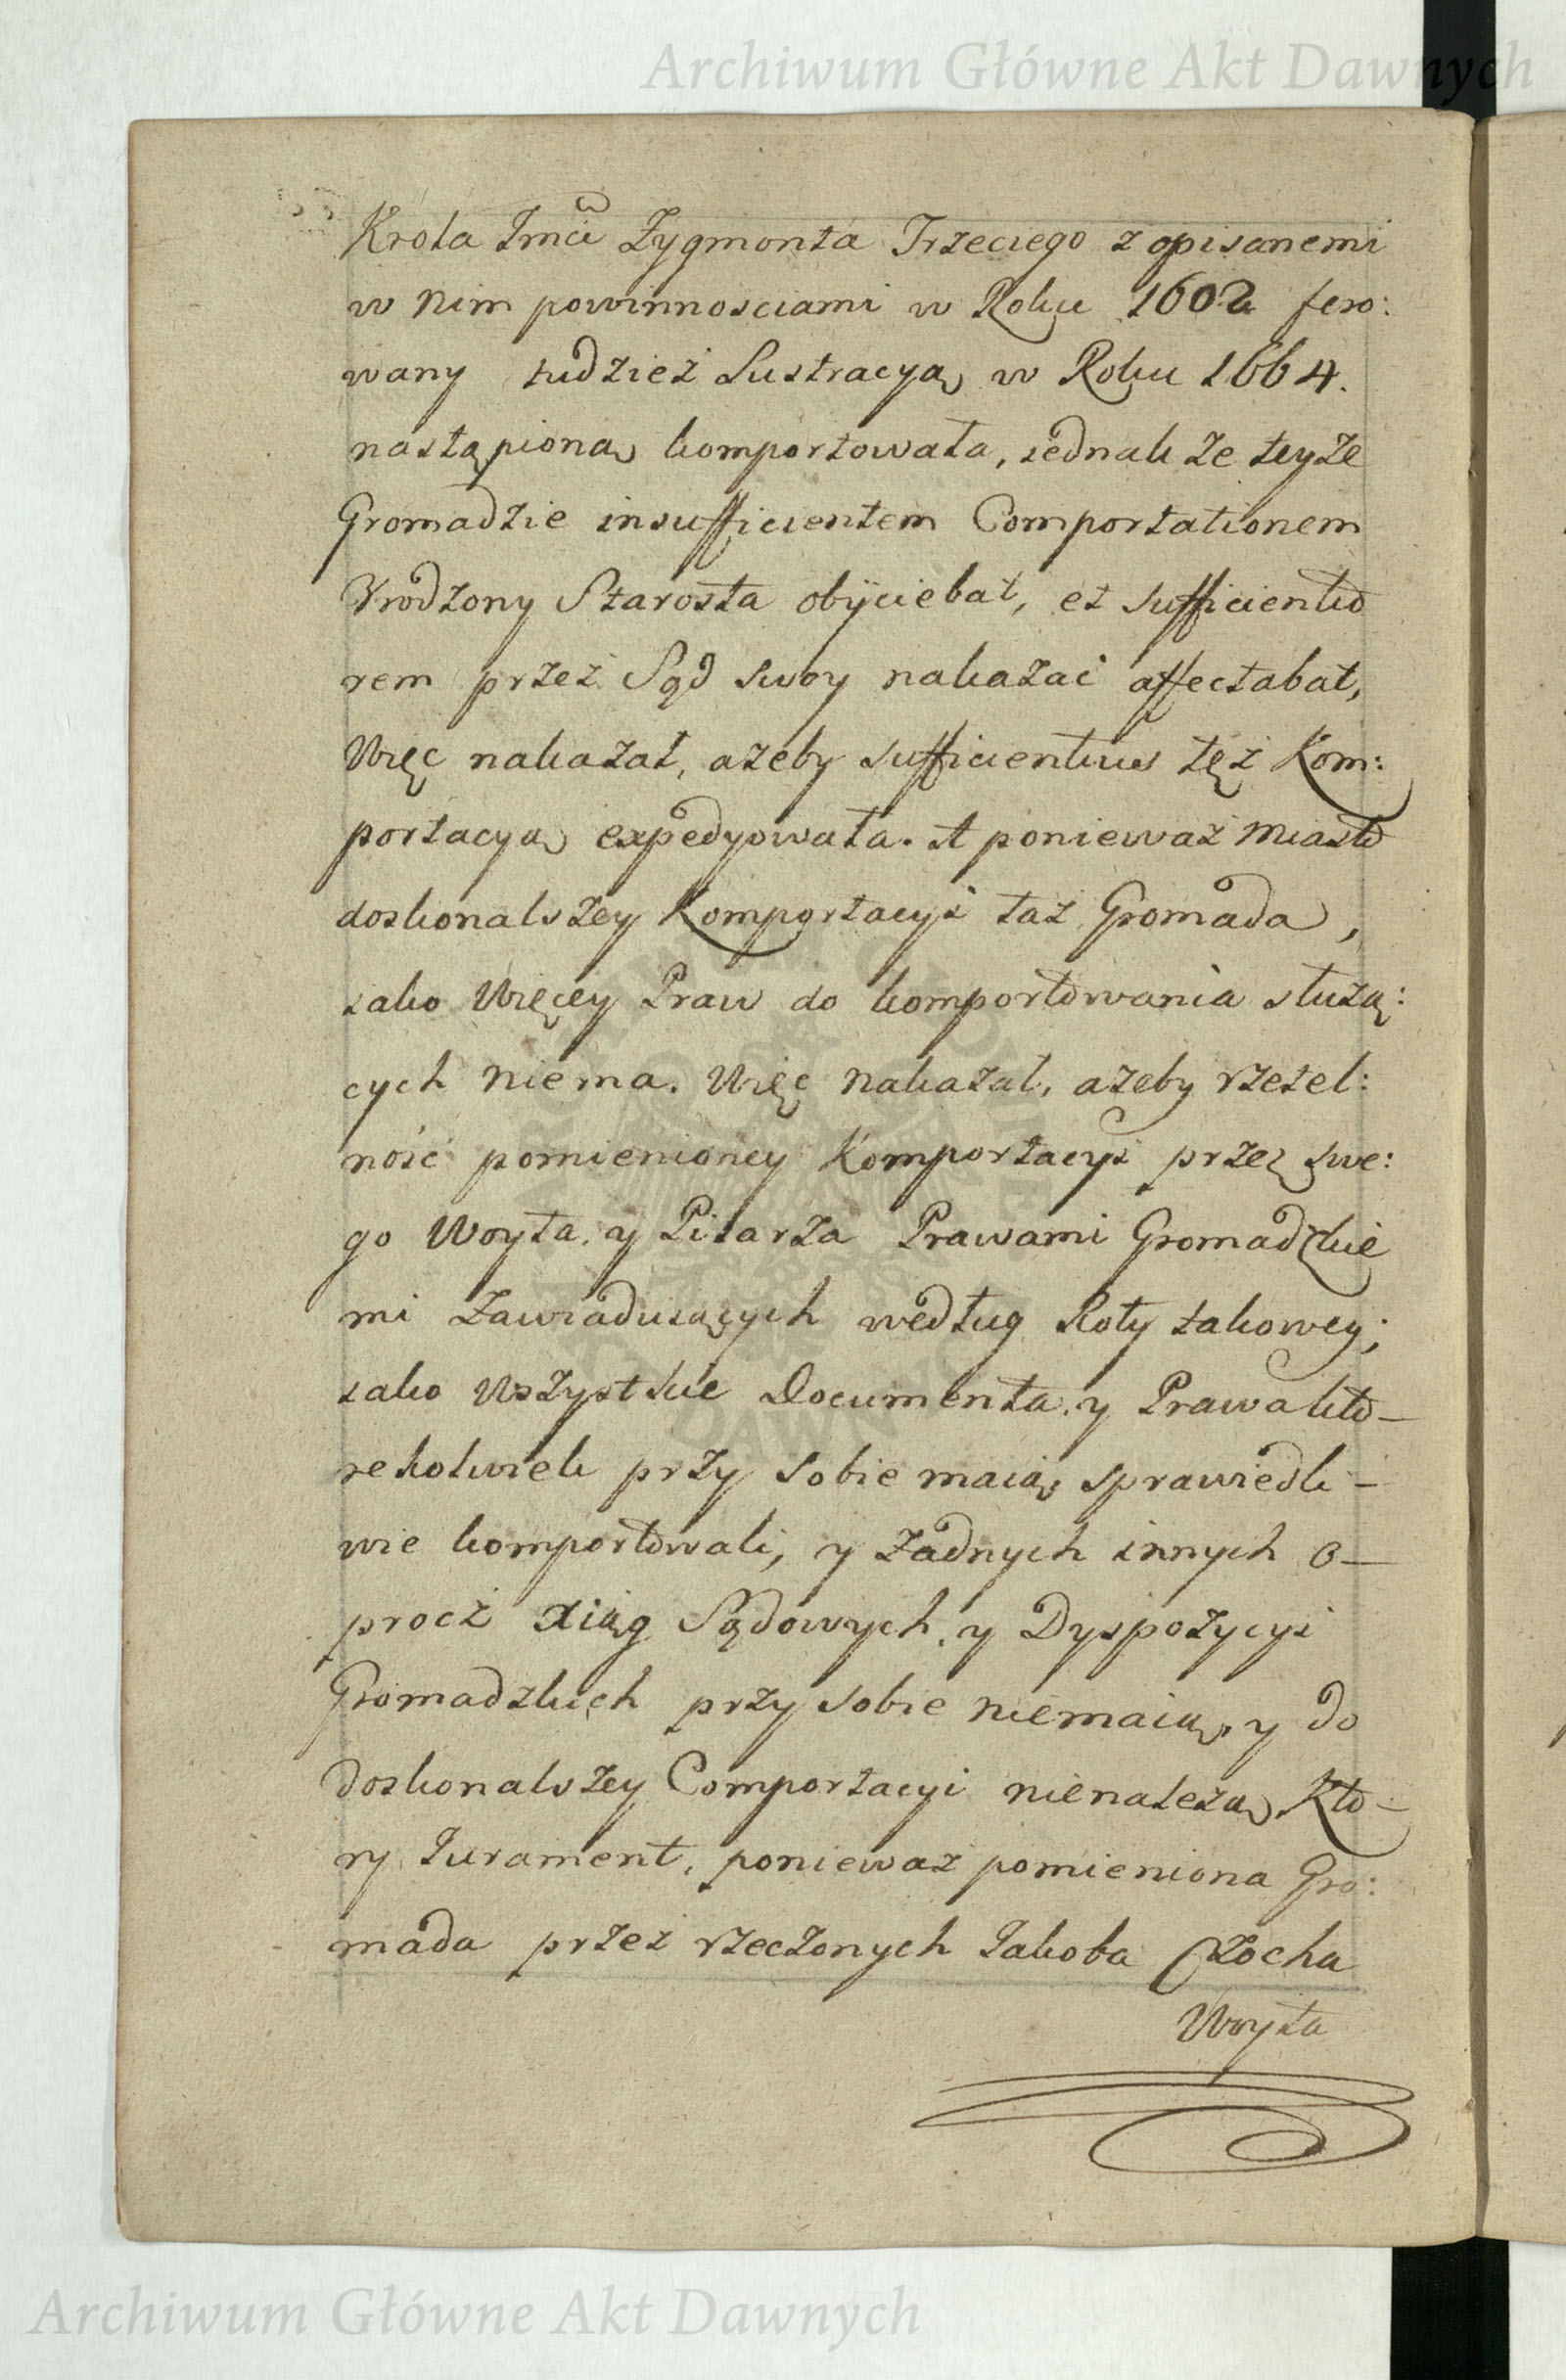 Archiwum Główne Akt Dawnych
Krola Jmci Zygmonta Trzeciego z opisanemi
w nim powinnosciami w Roku 1602 fero:
wany tudzież Lustracyą w Roku 1664.
nastąpioną komportowała, jednakże teyże
Gromadzie insufficientem Comportationem
Urodzony Starosta obijciebat, et sufficientio
rem przez Sąd swoy nakazać affectabat,
Więc nakazał, ażeby sufficientius też Kom:
portacyą expedyowała. A ponieważ miasto
doskonalszey Komportacyi taż Gromada,
jako więcey Praw do komportowania służą:
cych niema. Więc nakazał, ażeby rzetel:
ność pomienioney Komportacyi przez swe:
go Woyta y Pisarza Prawami Gromadzkie
mi Zawiaduiących według Roty takowey;
jako wszystkie Documenta y Prawa kto-
rekolwiek przy sobie maią, sprawiedli-
wie komportowali, y żadnych innych o-
procz xiąg Sądowych y Dyspozycyi
Gromadzkich przy sobie niemaią, y do
doskonalszey Comportacyi nienależą, Kto-
ry Jurament, ponieważ pomieniona Gro:
mada przez rzeczonych Jakoba Czocha
Woyta
Archiwum Główne Akt Dawnych